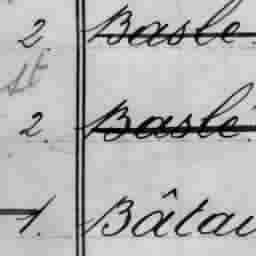 2 Basle.
st
2. Baslé.
1. Bâtau